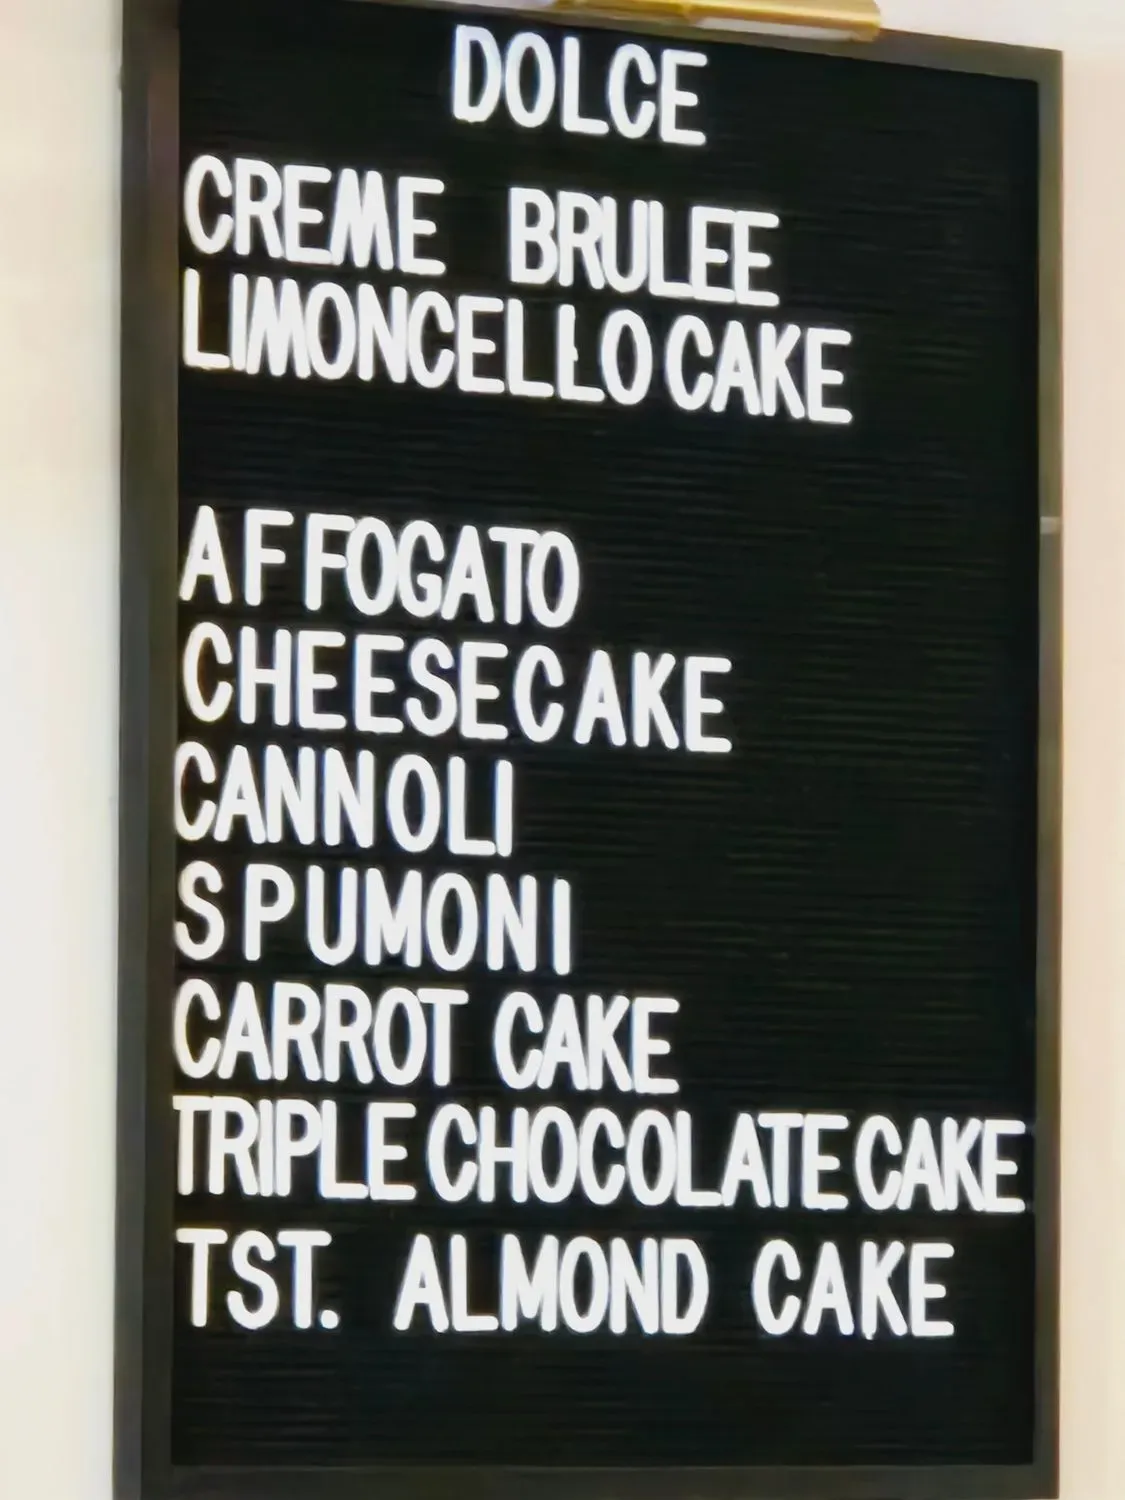 DOLCE
CREME BRULEE
LIMONCELLO CAKE
AFFOGATO
CHEESECAKE
CANNOLI
SPUMONI
CARROT CAKE
TRIPLE CHOCOLATE CAKE
TST. ALMOND CAKE